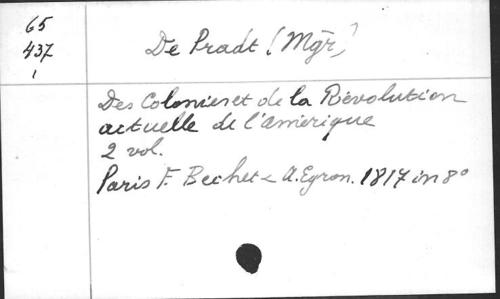 65
437
1
De Pradt (Mgr)
Des Colonies et de la Révolution
actuelle de l'amérique
2 vol.
Paris F. Bechet - A. Egron. 1817 in 8°